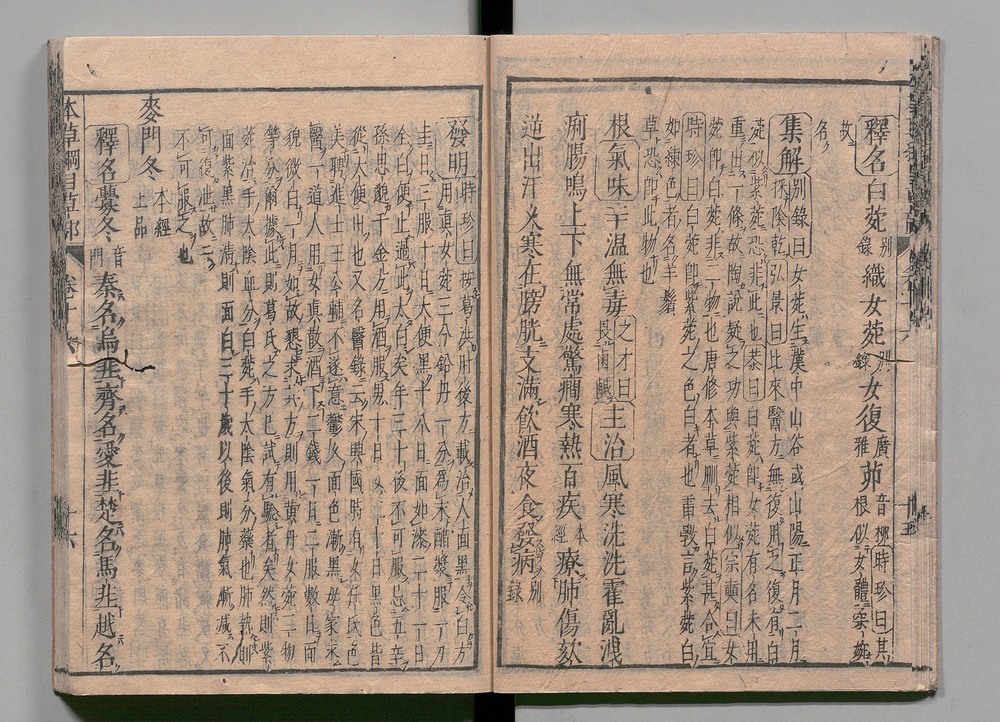 釋名白菀別錄織女菀別錄女復廣雅茆音柳時珍曰其根似女體柔婉
故名
集解別錄曰女菀生漢中山谷或山陽正月二月
採陰乾弘景曰比來醫方無復用之復有白
菀似紫菀恐非此也恭曰白菀即女菀有名未用
重出一條故陶說疑之功與紫菀相似宗奭曰女
菀即白菀非二物也唐修本草刪去白菀甚合宜
時珍曰白菀即紫菀之色白者也雷斅言紫菀白
如練色者名羊鬚
草恐即此物也
根氣味辛溫無毒之才曰畏鹵鹹主治風寒洗洗霍亂洩
痢腸鳴上下無常處驚癎寒熱百疾本經療肺傷欬
逆出汗久寒在膀胱支滿飲酒夜食發病別錄
發明時珍曰按葛洪肘後方載治人面黑令白方
用真女菀三分鉛丹一分為末醋漿服一刀
圭日三服十日大便黑十八日面如漆二十一日
全白便止過此太白矣年三十後不可服忌五辛
孫思邈千金方用酒服男十日女二十日黑色皆
從大便出也又名醫錄云宋興國時有女任氏色
美聘進士王公輔不遂意鬱久面色漸黑母家求
醫一道人用女真散酒下二錢一日二服數日面
貌微白一月如故懇求其方則用黃丹女菀二物
等分爾據此則葛氏之方已試有驗者矣然則紫
菀治手太陰血分白菀手太陰氣分藥也肺熱則
面紫黑肺清則面白三十歲以後則肺氣漸減不
可復泄故云
不可服之也
麥門冬本經上品
釋名虋冬音門秦名烏韭齊名愛韭楚名馬韭越名
本草綱目草部 卷十六 十六